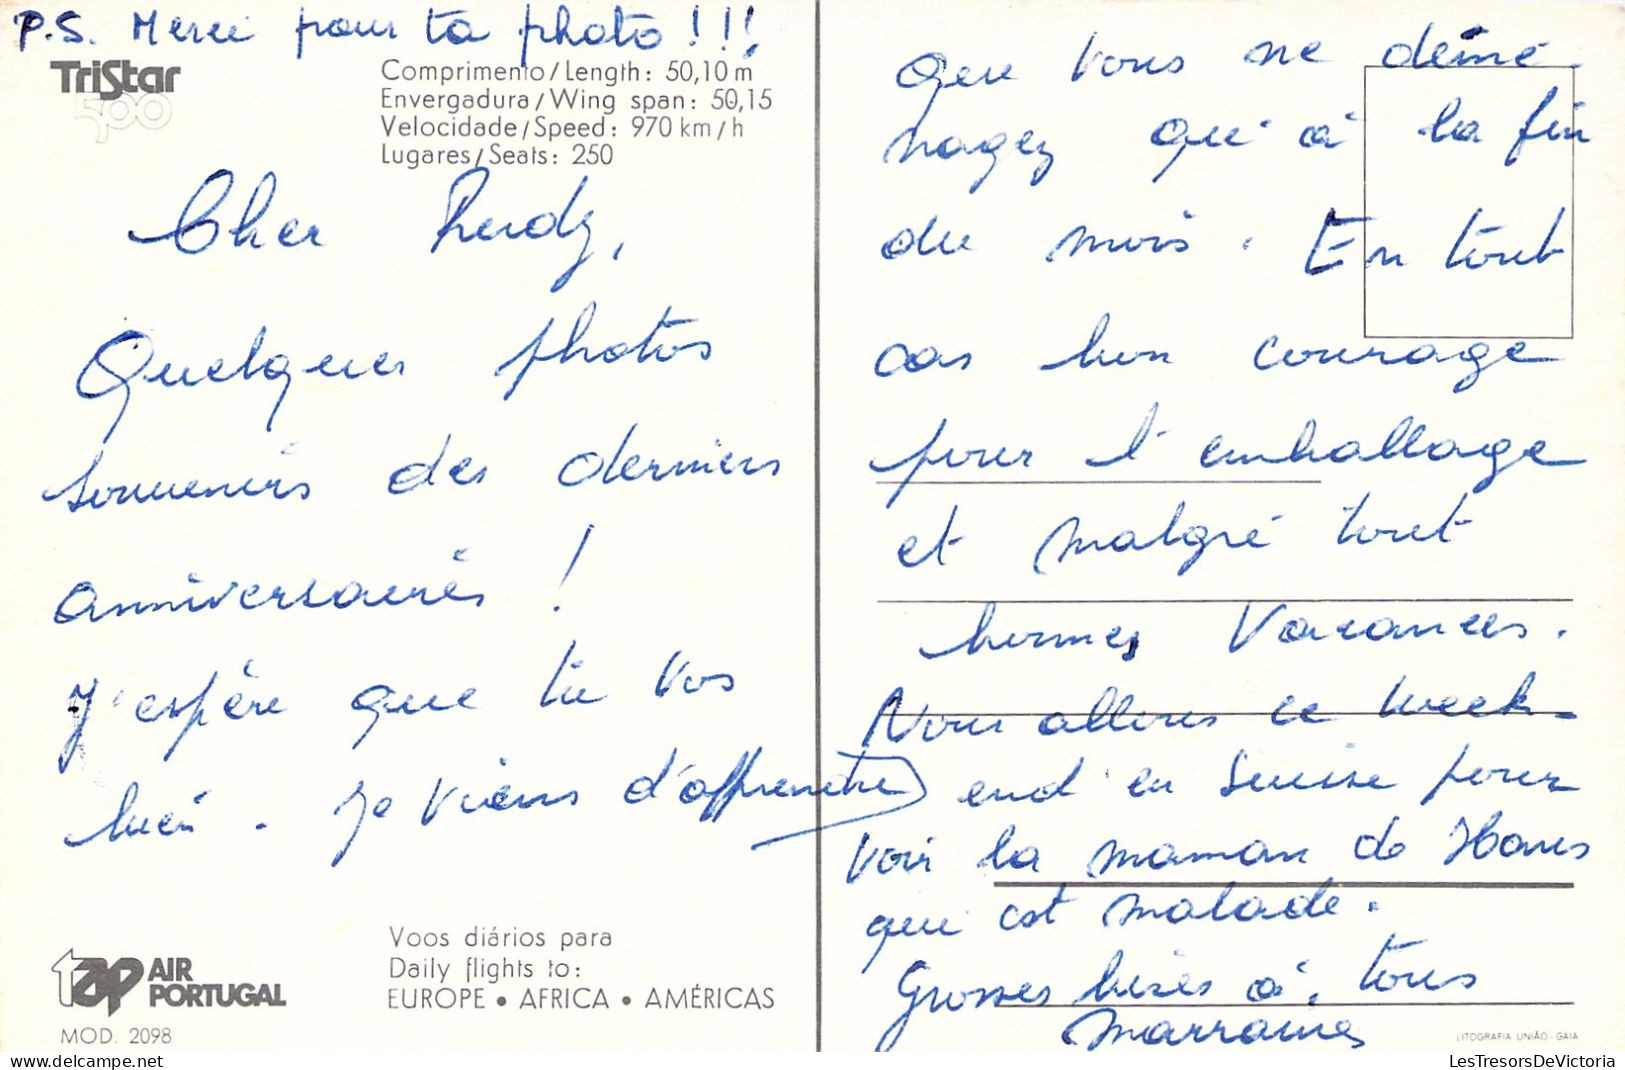 P.S. Merci pour ta photo !!!
TriStar
500
Comprimento/Length: 50,10 m
Envergadura/Wing span: 50,15
Velocidade/Speed: 970 km/h
Lugares/Seats: 250
Cher Rudy,
Quelques photos
souvenirs des derniers
anniversaires !
J'espère que tu vas
bien. Je viens d'apprendre
tap AIR
PORTUGAL
MOD. 2098
Voos diários para
Daily flights to:
EUROPE • AFRICA • AMÉRICAS
que vous ne démé-
nagez qu'à la fin
du mois. En tout
cas bon courage
pour l'emballage
et malgré tout
bonnes vacances.
Nous allons ce week-
end en Suisse pour
voir la maman de Hans
qui est malade.
Grosses bises à tous
Marraine
LITOGRAFIA UNIÃO - GAIA
LesTresorsDeVictoria